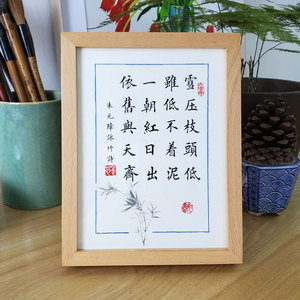 雪压枝頭低
雖低不着泥
一朝紅日出
依舊與天齊
朱元璋詠竹詩